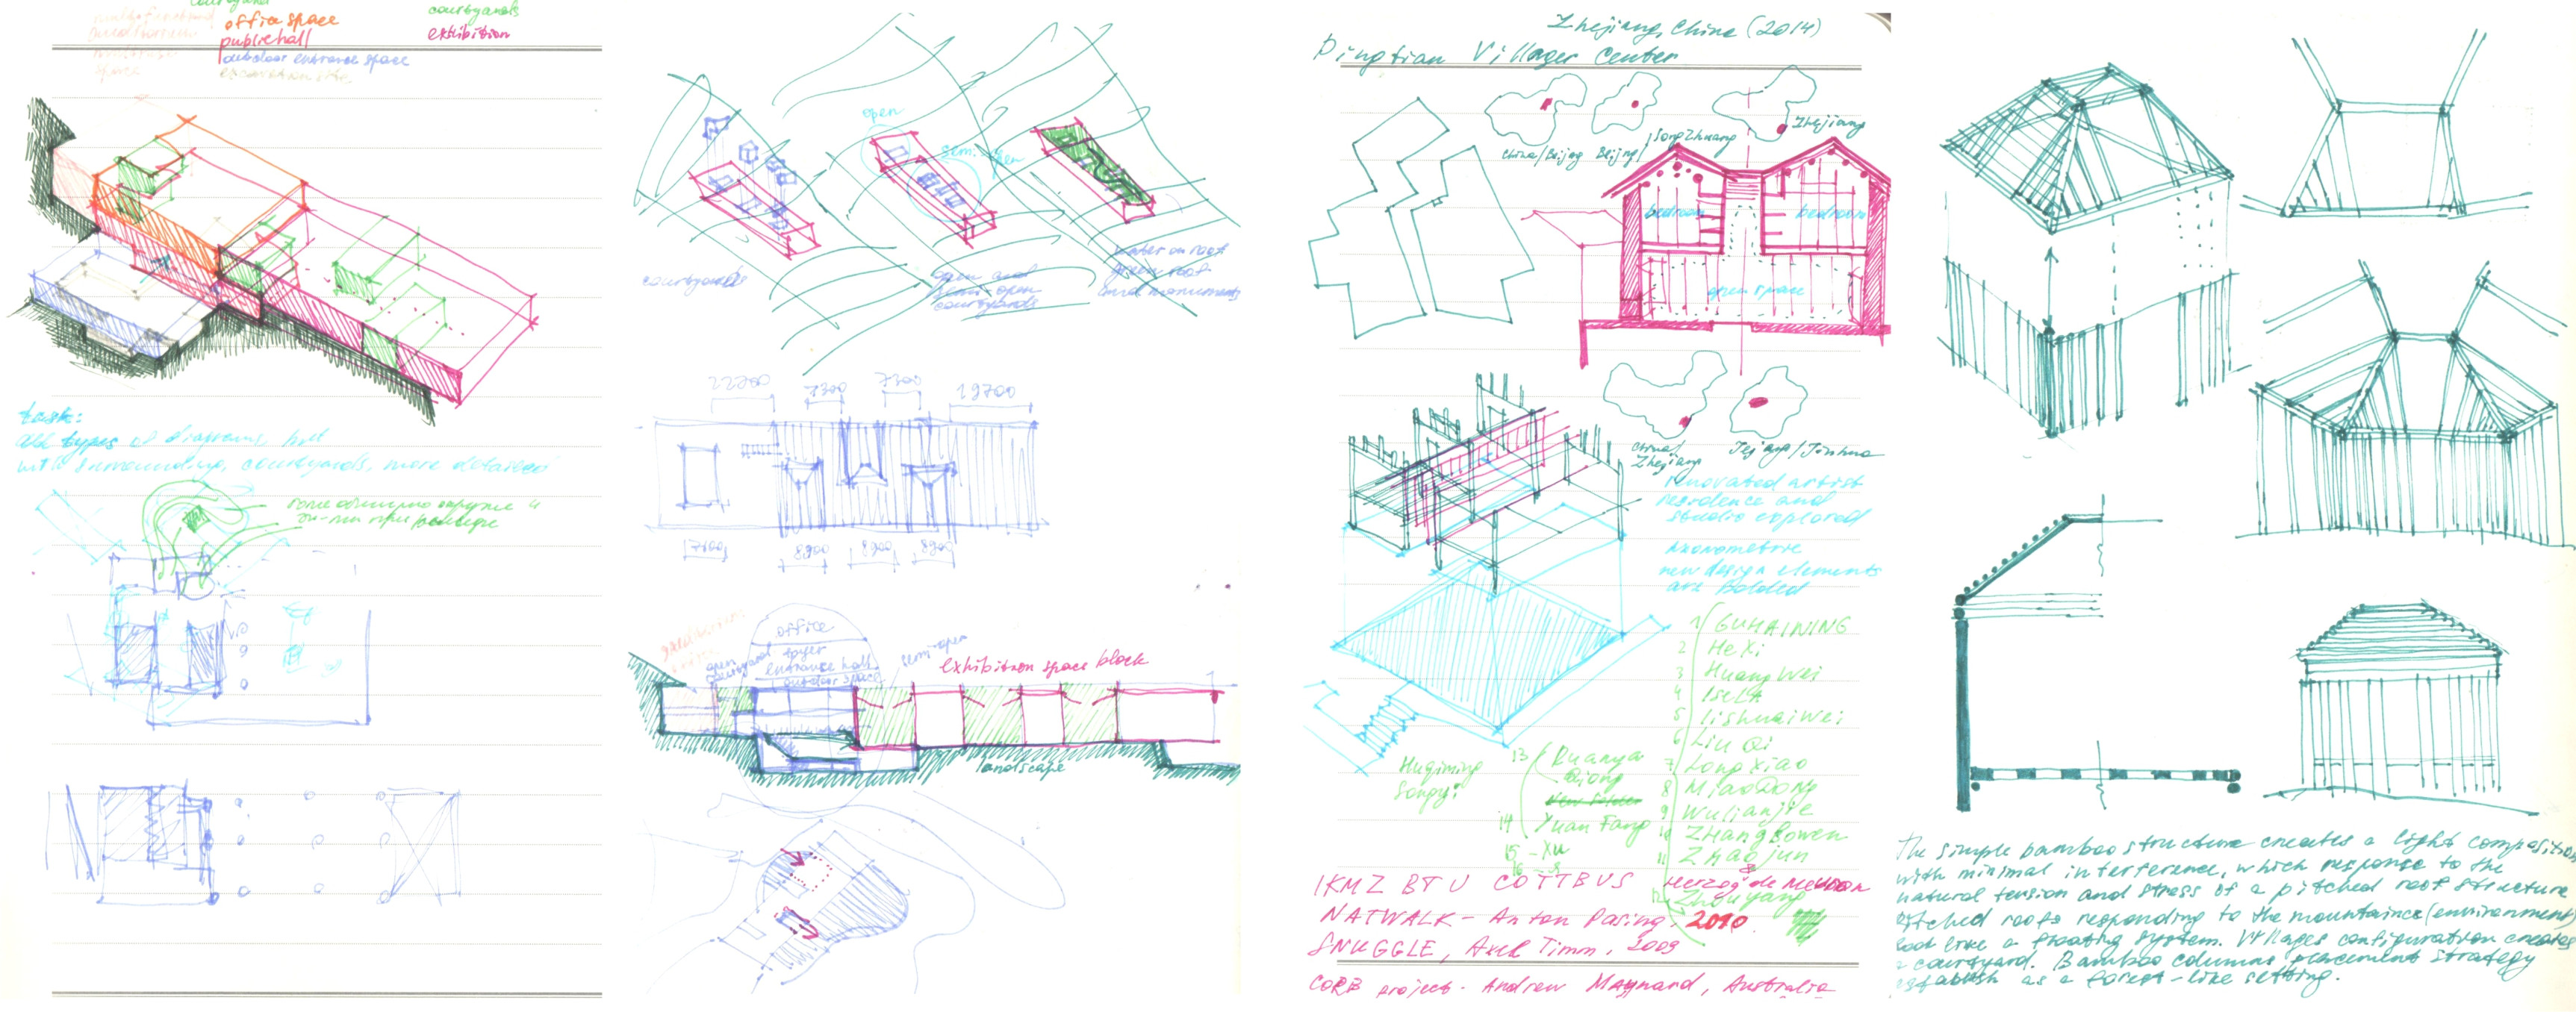 courtyards
office space
public hall
outdoor entrance space
excavation site
space
courtyards
exhibition
task:
all types of diagrams
with surrounding, courtyards, more detailed
open
semi-open
courtyards
open and
semi-open
courtyards
water on roof
green roof
22200
7300
7300
19700
8900
8900
8900
office
foyer
entrance hall
outdoor space
open
courtyard
semi-open
exhibition space block
landscape
Zhejiang, China (2014)
Pingtian Villager Center
China/Beijing
Beijing/
Songzhuang
Zhejiang
bedroom
bedroom
open space
China/
Zhejiang
renovated artist
residence and
studio explored
Axonometric
new design elements
are Bolded
1 GUHAINING
2 HeXi
3 HuangWei
4
5 lishuaiWei
6 Liu Qi
7 LongXiao
8 MiaoDong
9 Wulianjie
10 ZHangBowen
11 Zhaojun
12 Zhouyang
13 Ruanya
Qiong
14 Yuan Fang
15 - Xu
16
IKMZ BTU COTTBUS Herzog de Meuron
NATWALK - Anton Pasing, 2010
SNUGGLE, Axel Timm, 2009
CORB project - Andrew Maynard, Australia
The simple bamboo structure creates a light composition
with minimal interference, which response to the
natural tension and stress of a pitched roof structure
Pitched roofs responding to the mountaince (environment)
look like a floating system. Villages configuration creates
a courtyard. Bamboo columns placement strategy
establish as a forest-like setting.